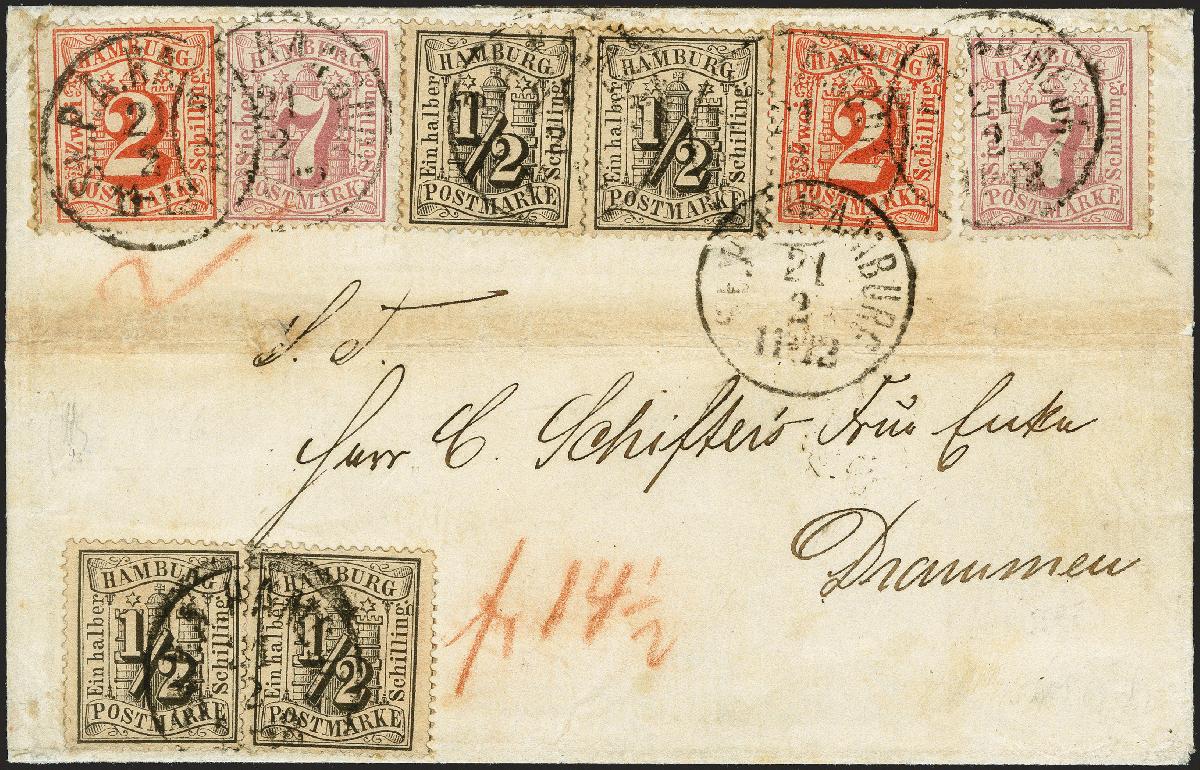 HAMBURG
Zwei Schilling
2
POSTMARKE
HAMBURG
Sieben Schilling
7
POSTMARKE
HAMBURG
Ein halber Schilling
1/2
POSTMARKE
HAMBURG
Ein halber Schilling
1/2
POSTMARKE
Zwei Schilling
2
POSTMARKE
Sieben Schilling
7
POSTMARKE
21
2
21
2
11-12
2
S. T.
Herr C. Schifter's Frue Enke
Drammen
HAMBURG
Ein halber Schilling
1/2
POSTMARKE
HAMBURG
Ein halber Schilling
1/2
POSTMARKE
fr 14 1/2